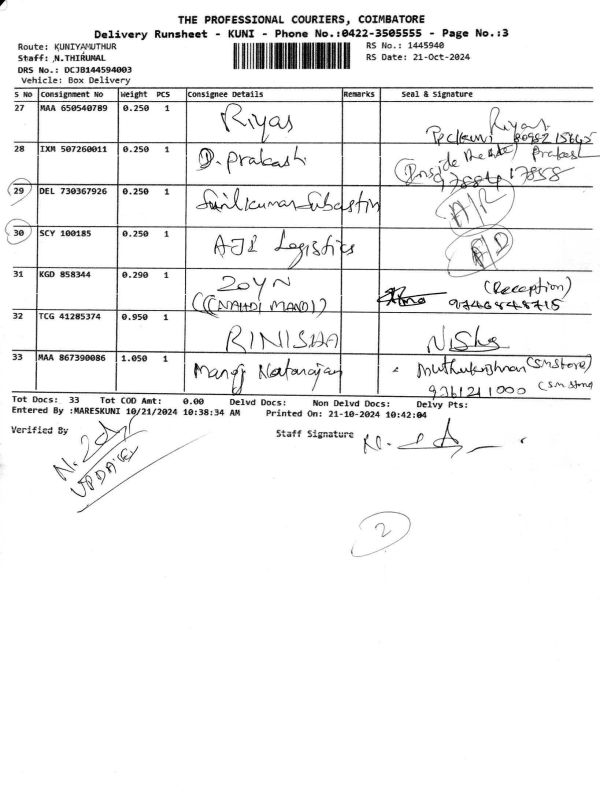 THE PROFESSIONAL COURIERS, COIMBATORE
Delivery Runsheet - KUNI - Phone No.:0422-3505555 - Page No.:3
Route: KUNIYAMUTHUR RS No.: 1445940
Staff: N.THIRUMAL RS Date: 21-Oct-2024
DRS No.: DCJB144594003
Vehicle: Box Delivery
S No Consignment No Weight PCS Consignee Details Remarks Seal & Signature
27 MAA 650540789 0.250 1 Riyas Riyas
28 IXM 507260011 0.250 1 D. prakash Prakash
29 DEL 730367926 0.250 1 Sunilkumar Sabastin
30 SCY 100185 0.250 1 AJL Logistics A/D
31 KGD 858344 0.290 1 ZOYN (Reception)
((NAHDI MANDI) 9746848715
32 TCG 41285374 0.950 1 RINISHA Nisha
33 MAA 867390086 1.050 1 Manoj Natarajan Muthukrishnan (S.M Store)
(S.M Store)
Tot Docs: 33 Tot COD Amt: 0.00 Delvd Docs: Non Delvd Docs: Delvy Pts:
Entered By :MARESKUNI 10/21/2024 10:38:34 AM Printed On: 21-10-2024 10:42:04
Verified By Staff Signature
UPDATE
2